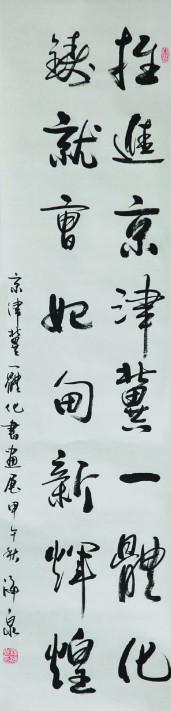 推進京津冀一體化
鑄就曹妃甸新輝煌
京津冀一體化書畫展甲午秋海泉